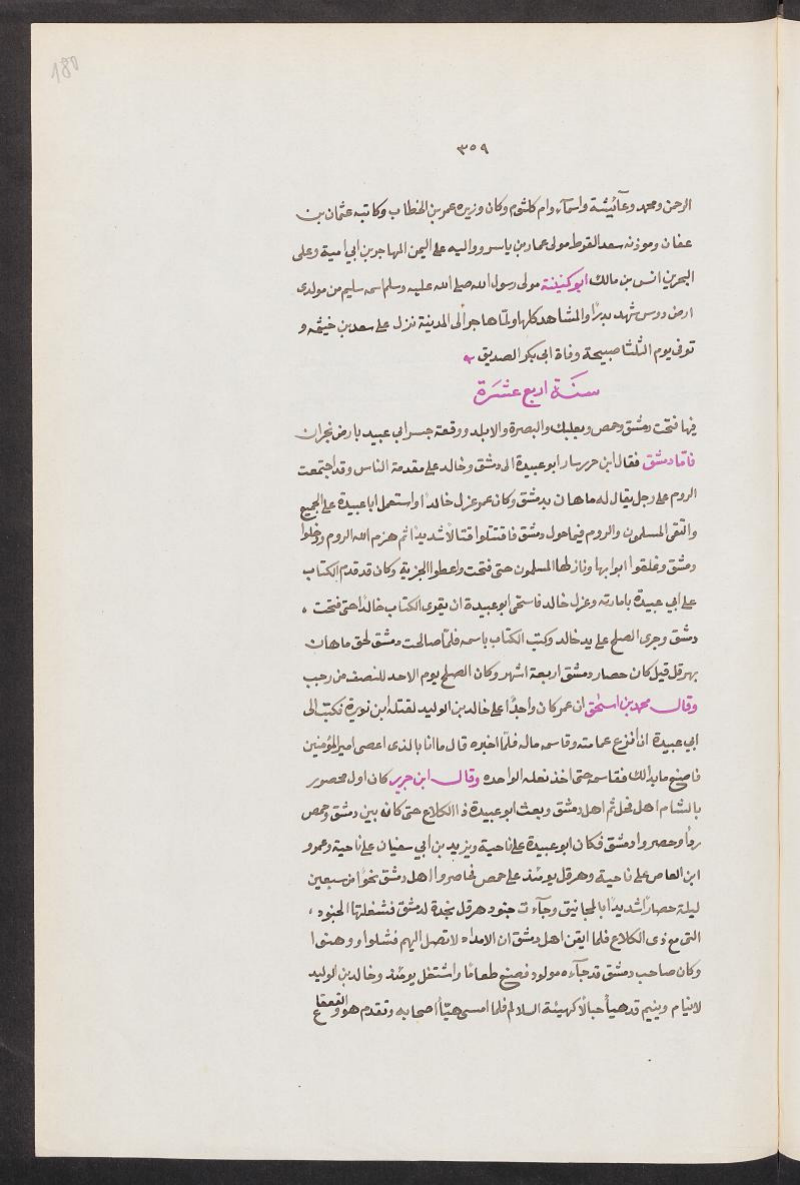 180
٣٥٩
الرحمن ومحمد وعآئيشة واسمآء وام كلثوم وكان وزيره عمر بن الخطاب وكاتبه عثمان بن
عفان وموذنه سعد القرط مولى عمار بن ياسر وواليه على اليمن المهاجر بن ابي امية وعلى
البحرين انس بن مالك ابو كبشة مولى رسول الله صلى الله عليه وسلم اسمه سليم من مولدى
ارض دوس شهد بدرًا والمشاهد كلها ولمّا هاجر الى المدينة نزل على سعد بن خيثمه و
توفى يوم الثلثا صبيحة وفاة ابى بكر الصديق
سنة اربع عشرة
فيها فتحت دمشق وحمص وبعلبك والبصرة والابلد ووقعة جسر ابي عبيد بارض نجران
فامّا دمشق فقال ابن جرير سار ابو عبيدة الى دمشق وخالد على مقدمة الناس وقد اجتمعت
الروم على رجل يقال له ماهان بدمشق وكان عمر عزل خالدًا واستعمل ابا عبيدة على الجميع
والتقى المسلمون والروم فيما حول دمشق فاقتتلوا قتالًا شديدًا ثم هزم الله الروم ودخلوا
دمشق وغلقوا ابوابها ونازلها المسلمون حتى فتحت واعطوا الجزية وكان قد قدم الكتاب
على ابي عبيدة بامارته وعزل خالد فاستحى ابو عبيدة ان يقرى الكتاب خالدًا حتى فتحت
دمشق وجرى الصلح على يد خالد وكتب الكتاب باسمه فلمّا صالحت دمشق لحق ماهان
بهرقل قيل كان حصار دمشق اربعة اشهر وكان الصلح يوم الاحد للنصف من رجب
وقال محمد بن اسحٰق ان عمر كان واجدًا على خالد بن الوليد لقتله ابن نويرة فكتب الى
ابي عبيدة ان انزع عمامته وقاسمه ماله فلمّا اخبره قال ما انا بالذى اعصى امير المؤمنين
فاصنع ما بدالك فقاسمه حتى اخذ نعله الواحده وقال ابن جرير كان اول محصور
بالشام اهل فحل ثم اهل دمشق وبعث ابو عبيدة ذا الكلاع حتى كان بين دمشق وحمص
ردأ وحصروا دمشق فكان ابو عبيدة على ناحية ويزيد بن ابي سفيان على ناحية وعمرو
ابن العاص على ناحية وهرقل يومئذ على حمص فحاصروا اهل دمشق نحوًا من سبعين
ليلة حصارًا شديدًا بالمجانيق وجآءت جنود هرقل نجدة لدمشق فشغلتها الجنود
التى مع ذى الكلاع فلما ايقن اهل دمشق ان الامداد لا تصل اليهم فشلوا ووهنوا
وكان صاحب دمشق قد جآءه مولود فصنع طعامًا واشتغل يومئذ وخالد بن الوليد
لا ينام وينيم قد هيأ حبالًا كهيئة السلالم فلما امسى هيّأ اصحابه وتقدم هو والقعقاع